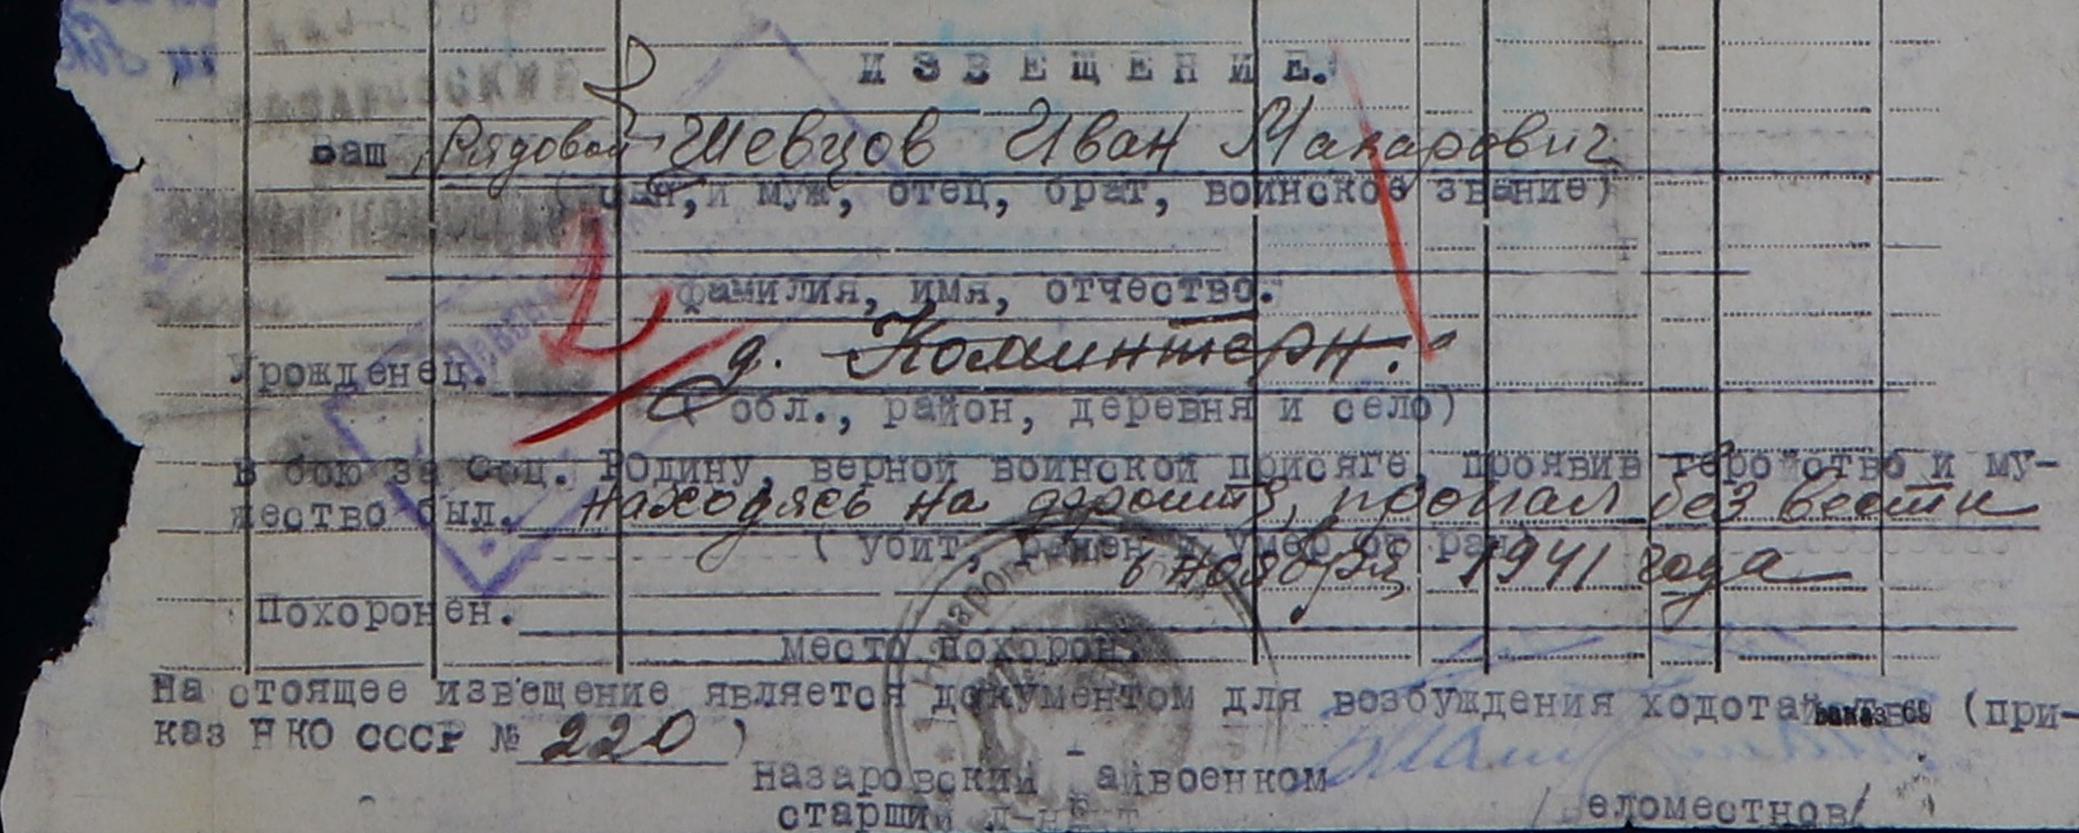 ИЗВЕЩЕНИЕ.
Ваш Рядовой Шевцов Иван Макарович
(сын, муж, отец, брат, воинское звание)
фамилия, имя, отчество.
Урожденец. д. Коминтерн.
( обл., район, деревня и село)
в бою за Соц. Родину, верной воинской присяге, проявив геройство и му-
жество был. находясь на фронте, пропал без вести
( убит, ранен и умер от ран)
в ноябре 1941 года
Похоронен.
место похорон.
На стоящее извещение является документом для возбуждения ходота (при-
каз НКО СССР № 220 )
Назаровский айвоенком
старший л-нт
/ еломестнов/